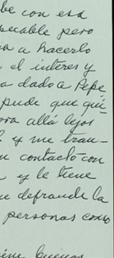 be con esa
pecable pero
a a hacerlo
el interes y
a dado a Pepe
pude que qui-
ora allá lejos
y me tran-
contacto con
y le tiene
defraude la
personas como
buenos